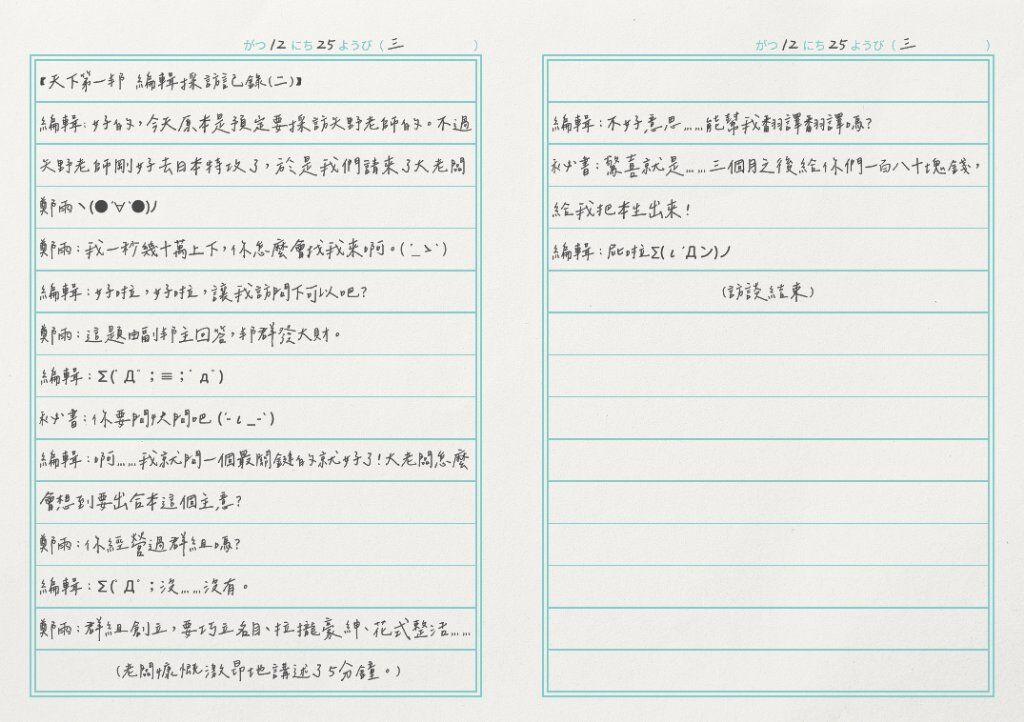 がつ 12 にち 25 ようび ( 三 )
【天下第一邦 編輯採訪記錄(二)】
編輯:好的,今天原本是預定要採訪矢野老師的。不過
矢野老師剛好去日本特攻了,於是我們請來了大老闆
鄭雨ヽ(●´∀`●)ノ
鄭雨:我一秒幾十萬上下,你怎麼會找我來啊。(´_ゝ`)
編輯:好啦,好啦,讓我訪問下可以吧?
鄭雨:這題由副邦主回答,邦群發大財。
編輯:Σ(゚Д゚;≡;゚д゚)
秘書:你要問快問吧 (´-ι_-`)
編輯:啊……我就問一個最關鍵的就好了!大老闆怎麼
會想到要出合本這個主意?
鄭雨:你經營過群組嗎?
編輯:Σ(゚Д゚;沒……沒有。
鄭雨:群組創立,要巧立名目、拉攏豪紳、花式整活……
(老闆慷慨激昂地講述了5分鐘。)
がつ 12 にち 25 ようび ( 三 )
編輯:不好意思……能幫我翻譯翻譯嗎?
秘書:驚喜就是……三個月之後給你們一百八十塊錢,
給我把本生出來!
編輯:屁啦Σ(ι´Дン)ノ
(訪談結束)